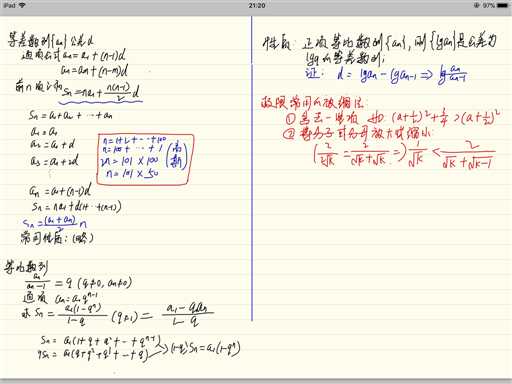 iPad
21:20
97%
等差数列{an} 公差d
通项公式 an = a1 + (n-1)d
an = am + (n-m)d
前n项之和 Sn = na1 + n(n-1)/2 d
Sn = a1 + a2 + ... + an
a1 = a1
a2 = a1 + d
a3 = a1 + 2d
⋮
an = a1 + (n-1)d
Sn = na1 + d(1+...+(n-1))
Sn = (a1+an)/2 n
常用性质：(略)
n = 1+2+...+100
n = 100+...+1
2n = 101 × 100
n = 101 × 50
(高斯)
等比数列
an/an-1 = q (q≠0, an≠0)
通项 an = a1q^n-1
Sn = a1(1-q^n)/1-q (q≠1) = a1-qan/1-q
Sn = a1(1+q+q²+...+q^n-1)
qSn = a1(q+q²+q³+...+q^n)
(1-q)Sn = a1(1-q^n)
性质：正项等比数列{an}, 则{lg an}是公差为
lg q的等差数列;
证: d = lg an - lg an-1 => lg an/an-1
数列常用的放缩法:
① 舍去一些项 如 (a+1/2)²+3/4 > (a+1/2)²
② 将分子或分母放大或缩小:
(2/2√k = 2/√k+√k =) 1/√k < 2/√k+√k-1